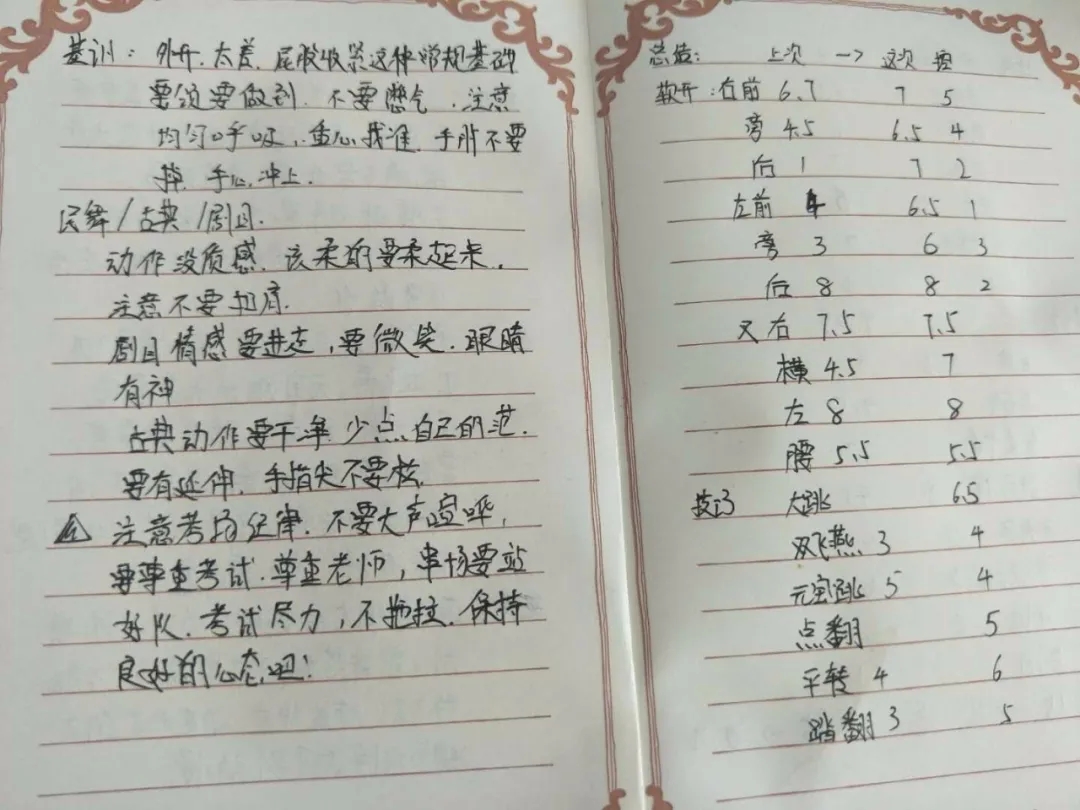 基训：外开.太差.屁股收紧这种常规基础
要领要做到.不要憋气.注意
均匀呼吸.重心找准.手肘不要
掉.手心冲上.
民舞/古典/剧目.
动作没质感.该柔的要柔起来.
注意不要扣肩.
剧目情感要进去，要微笑.眼睛
有神
古典动作要干净.少点自己的范.
要有延伸.手指尖不要
注意考场纪律.不要大声喧哗，
要尊重考试.尊重老师，串场要站
好队.考试尽力，不拖拉.保持
良好的心态吧！
总结： 上次 → 这次
软开：右前 6.7 7 5
旁 4.5 6.5 4
后 1 7 2
左前 4 6.5 1
旁 3 6 3
后 8 8 2
叉右 7.5 7.5
横 4.5 7
左 8 8
腰 5.5 5.5
技巧 大跳 6.5
双飞燕 3 4
元宝跳 5 4
点翻 5
平转 4 6
踏翻 3 5